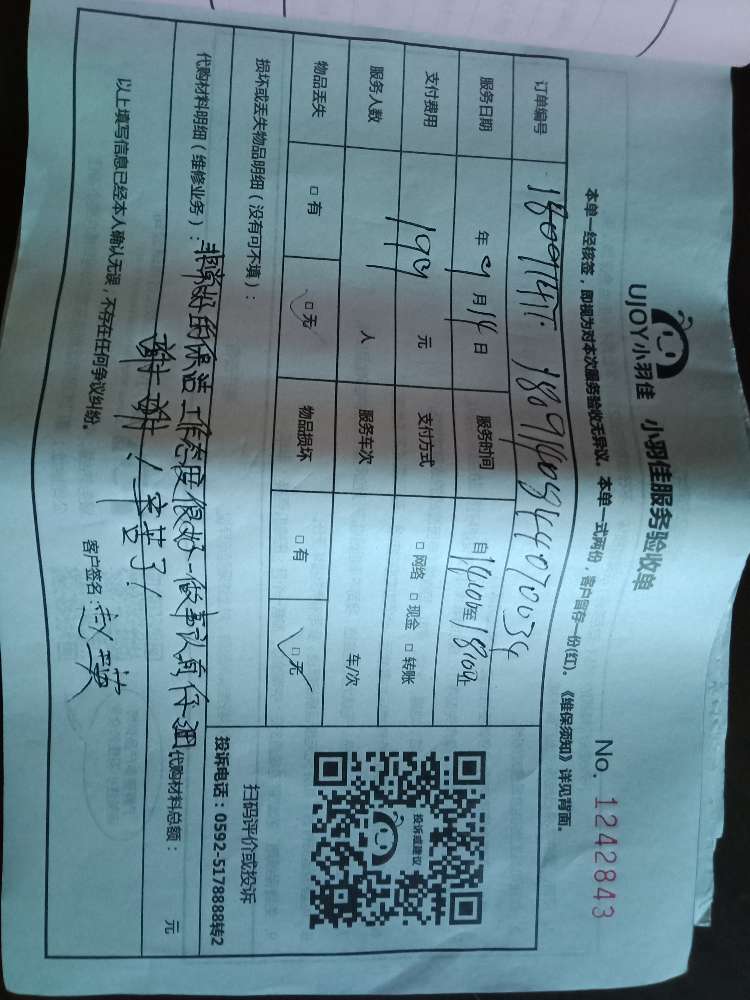 UJOY小羽佳 小羽佳服务验收单
No. 1242843
本单一经核签，即视为对本次服务验收无异议。本单一式两份，客户留存一份(红)。《维保须知》详见背面。
订单编号
服务日期 年 9月14日 服务时间 自14:00至18:00止
支付费用 199元 支付方式 □网络 □现金 □转账
服务人数 人 服务车次 车/次
物品丢失 □有 □无 物品损坏 □有 □无
损坏或丢失物品明细（没有可不填）：
代购材料明细（维修业务）：非常好的保洁工作态度很好-做事认真仔细
谢谢！辛苦了！
代购材料总额： 元
以上填写信息已经本人确认无误，不存在任何争议纠纷。 客户签名：
投诉或建议
扫码评价或投诉
投诉电话：0592-5178888转2